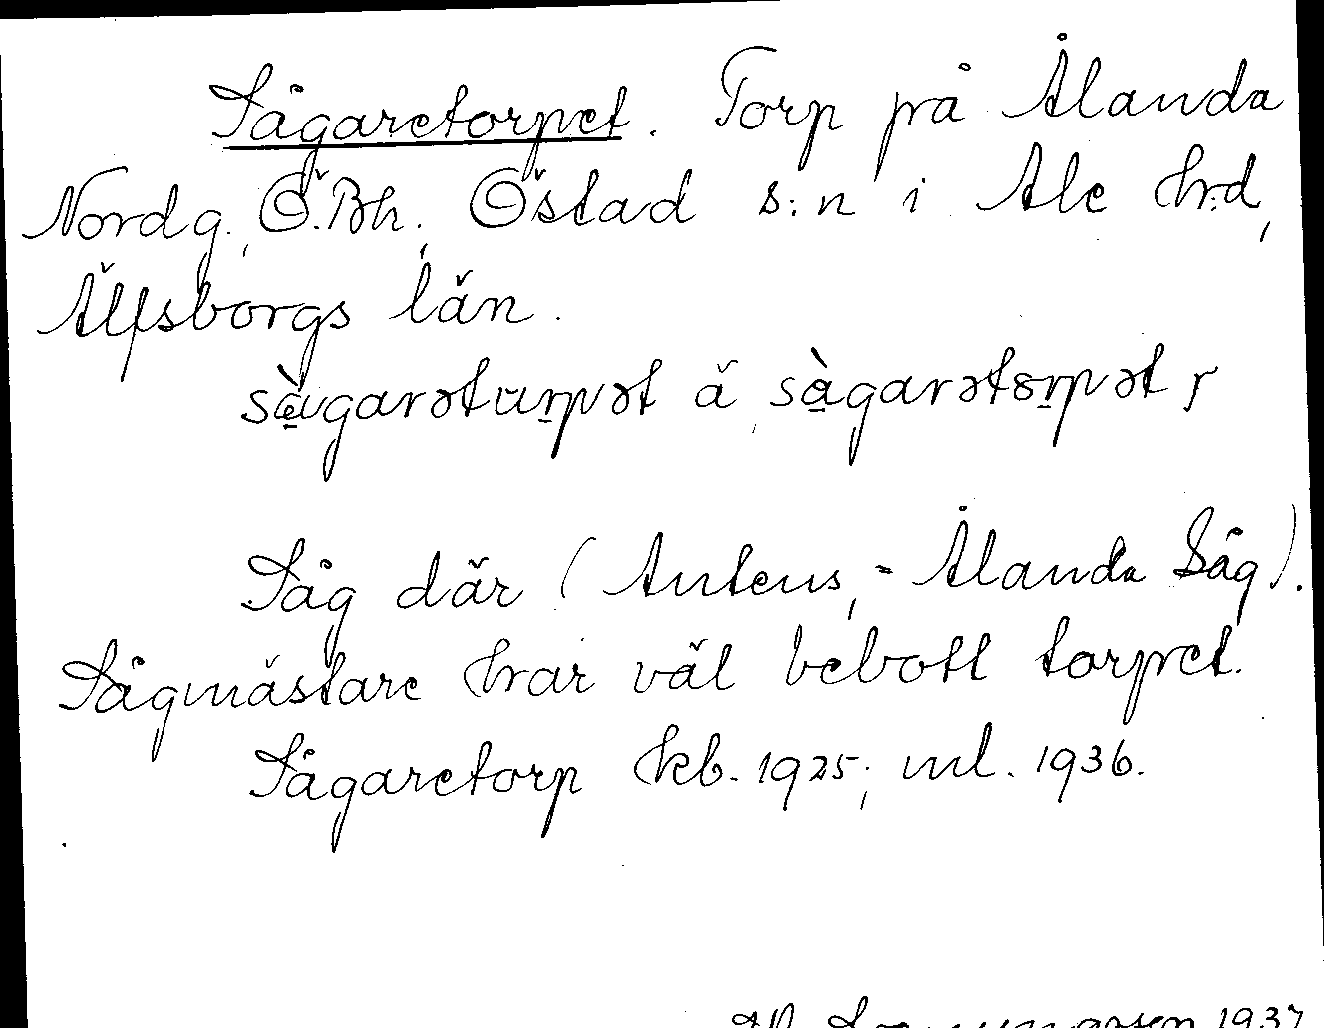 Sågaretorpet. Torp på Ålanda
Nordg., Ö.Bh., Östad s:n i Ale hrd,
Älfsborgs län.
ä
Såg där (Antens, = Ålanda Såg).
Sågmästare har väl bebott torpet.
Sågaretorp kb. 1925; ml. 1936.
1937